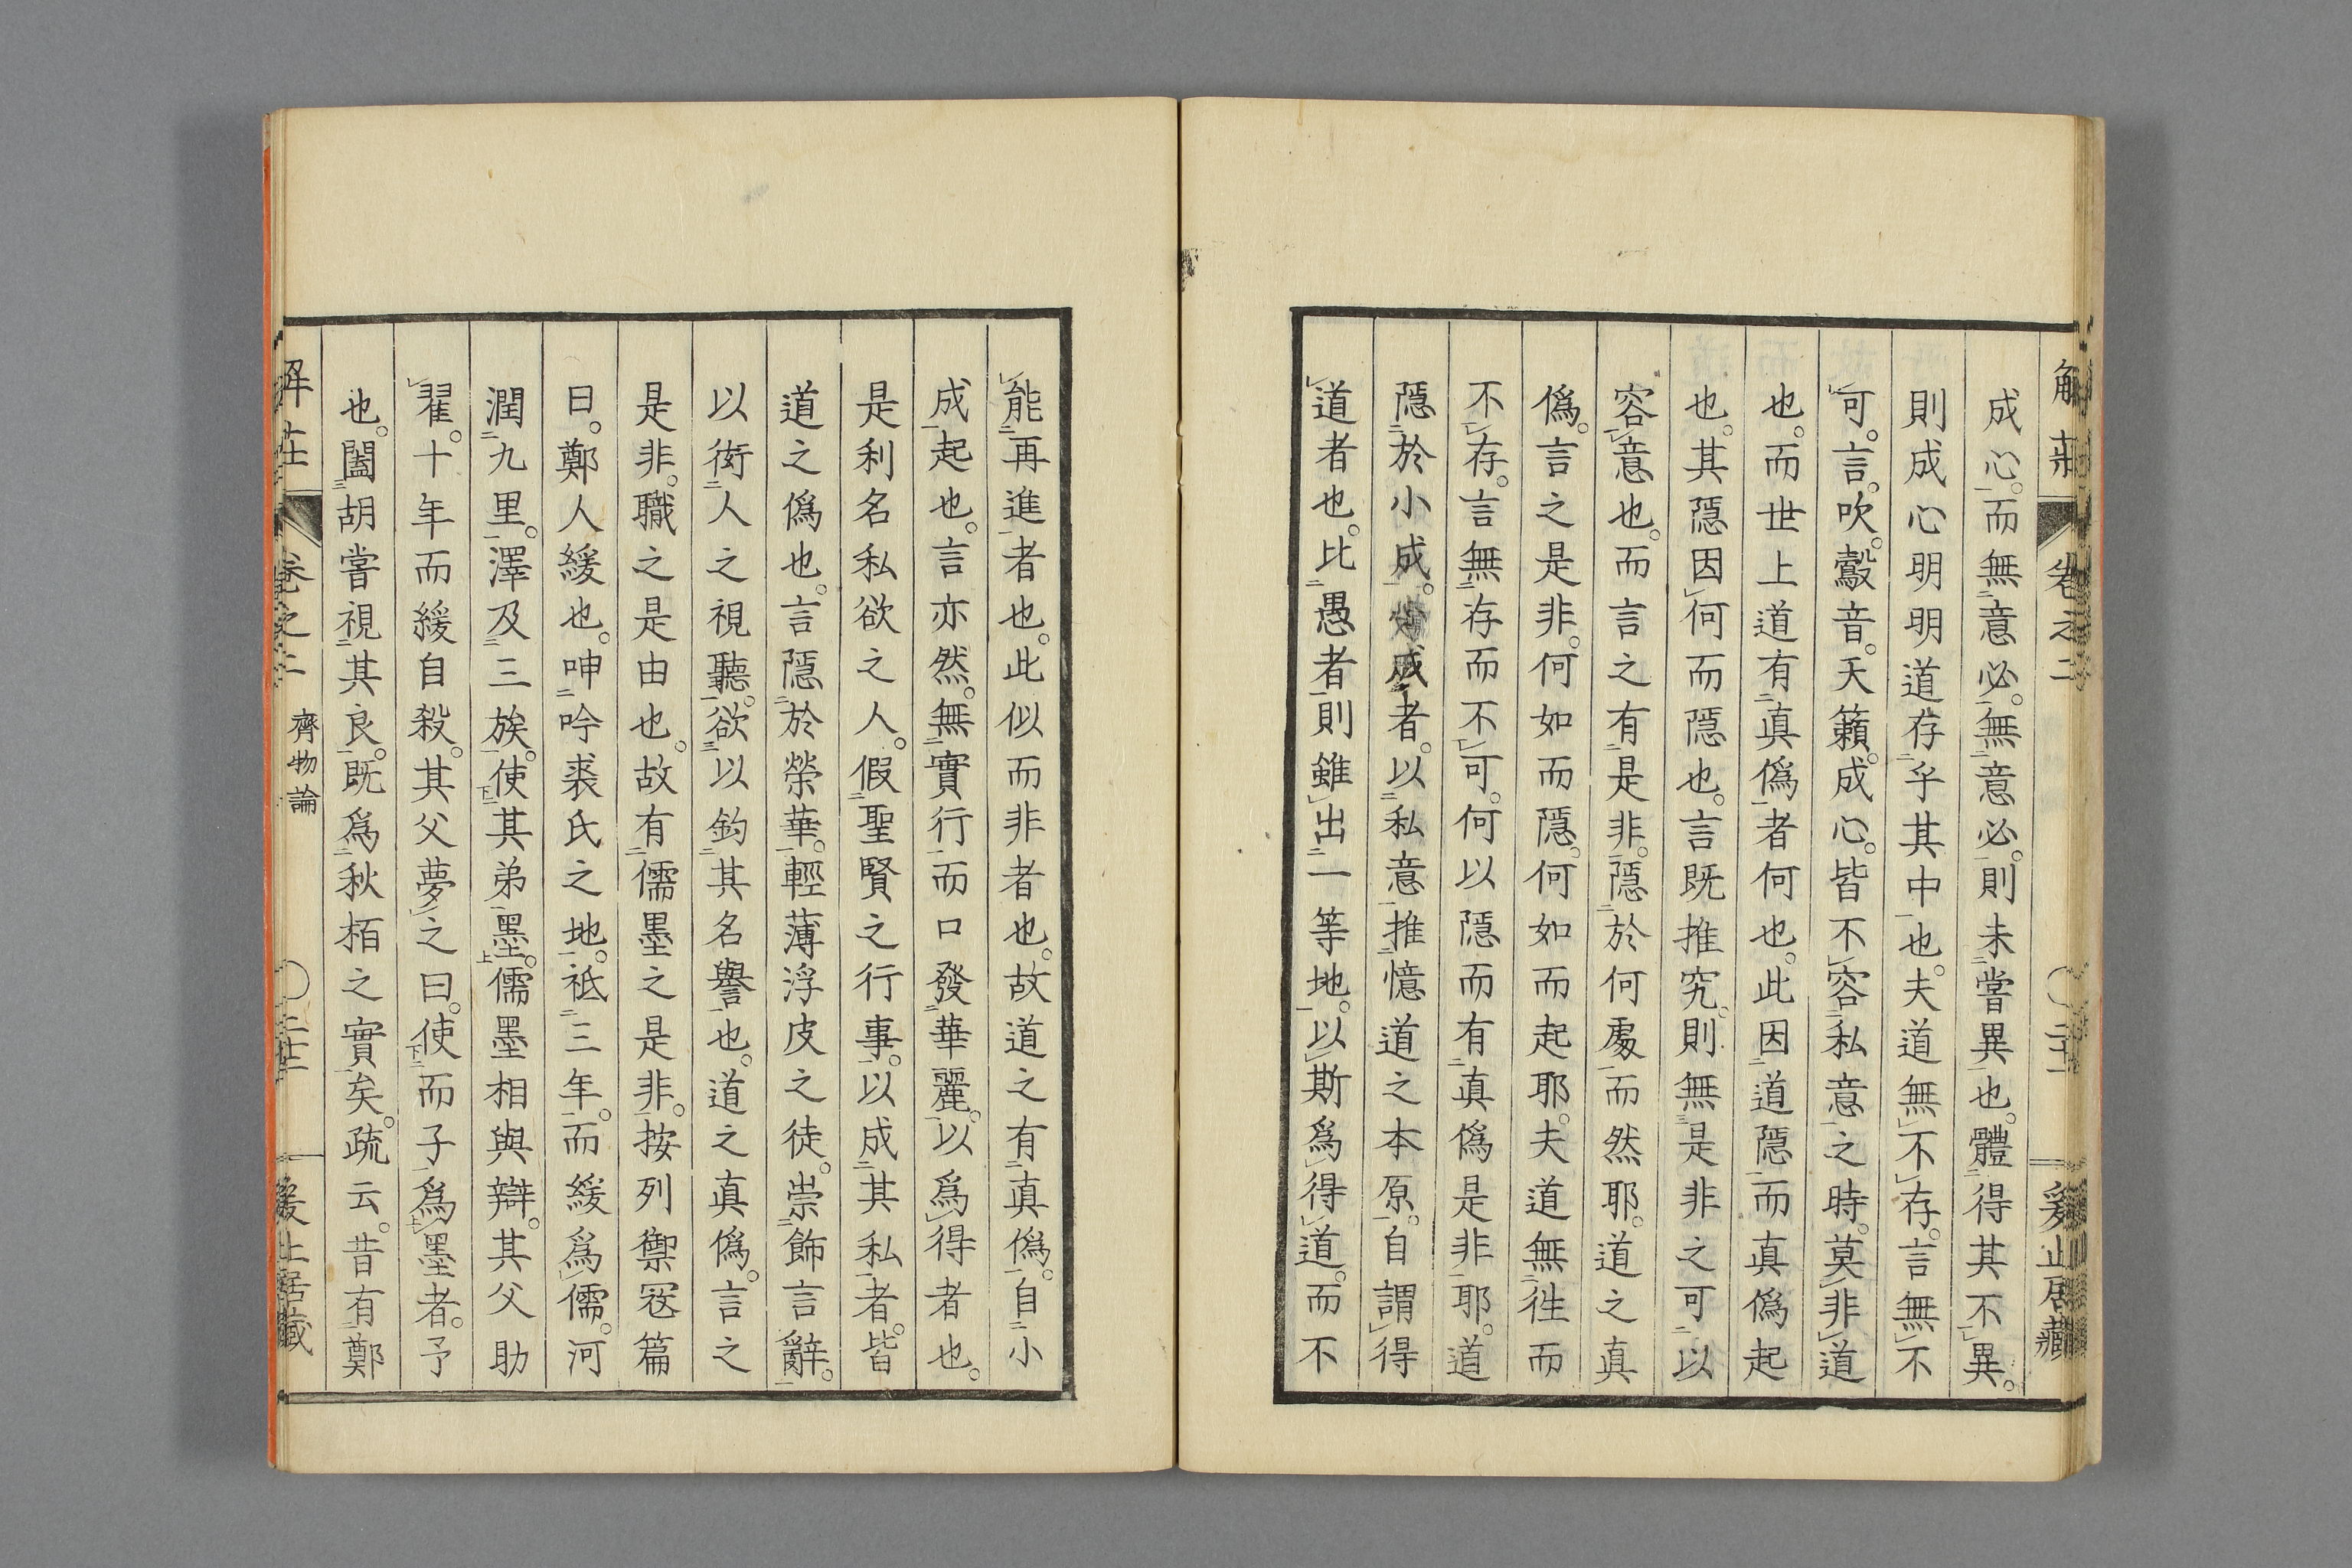 解莊 卷之二 爰止居藏
成心。而無意必。無意必。則未嘗異也。體得其不異。
則成心明明道存乎其中也。夫道無不存。言無不
可。言。吹。鷇音。天籟。成心。皆不容私意之時。莫非道
也。而世上道有真僞者何也。此因道隱而真僞起
也。其隱因何而隱也。言既推究。則無是非之可以
容意也。而言之有是非。隱於何處而然耶。道之真
僞。言之是非。何如而隱。何如而起耶。夫道無徃而
不存。言無存而不可。何以隱而有真僞是非耶。道
隱於小成。成者。以私意推憶道之本原。自謂得
道者也。比愚者則雖出一等地。以斯爲得道。而不
能再進者也。此似而非者也。故道之有真僞。自小
成起也。言亦然。無實行而口發華麗。以爲得者也。
是利名私欲之人。假聖賢之行事。以成其私者。皆
道之僞也。言隱於榮華。輕薄浮皮之徒。崇飾言辭。
以衒人之視聽。欲以釣其名譽也。道之真僞。言之
是非。職之是由也。故有儒墨之是非。按列禦冦篇
曰。鄭人緩也。呻吟裘氏之地。祗三年。而緩爲儒。河
潤九里。澤及三族。使其弟墨。儒墨相與辯。其父助
翟。十年而緩自殺。其父夢之曰。使而子爲墨者。予
也。闔胡嘗視其良。既爲秋栢之實矣。疏云。昔有鄭
解莊 卷之二 齊物論 爰止居藏